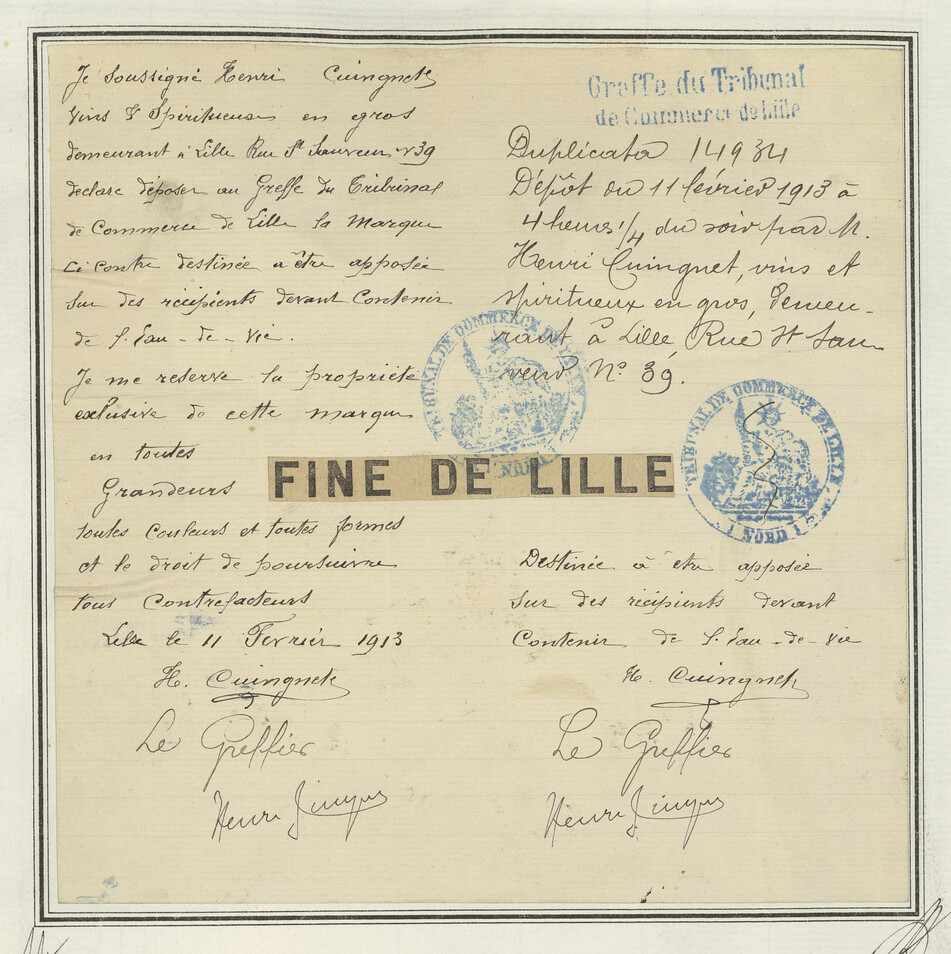 Je soussigné Henri Cuingnet
Vins & Spiritueux en gros
demeurant à Lille Rue St Sauveur N 39
declare déposer au Greffe du Tribunal
de Commerce de Lille la Marque
ci contre destinée a être apposée
sur des récipients devant Contenir
de l'Eau-de-Vie.
Je me reserve la propriété
exclusive de cette marque
en toutes
Grandeurs
toutes Couleurs et toutes formes
et le droit de poursuivre
tous Contrefacteurs
Lille le 11 Fevrier 1913
H. Cuingnet
Le Greffier
Henri
Greffe du Tribunal
de Commerce de Lille
Duplicata 14934
Dépôt du 11 février 1913 à
4 heures 1/4 du soir par M.
Henri Cuingnet, vins et
spiritueux en gros, demeu-
rant à Lille, Rue St Sau-
veur No 39.
TRIBUNAL DE COMMERCE DE LILLE
NORD
FINE DE LILLE
TRIBUNAL DE COMMERCE DE LILLE
NORD
Destinée à être apposée
sur des récipients devant
Contenir de l'Eau-de-Vie
H. Cuingnet
Le Greffier
Henri